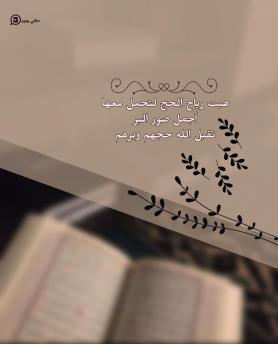 هبت رياح الحج لتحمل معها
أجمل صور البر
تقبل الله حجهم وبرهم